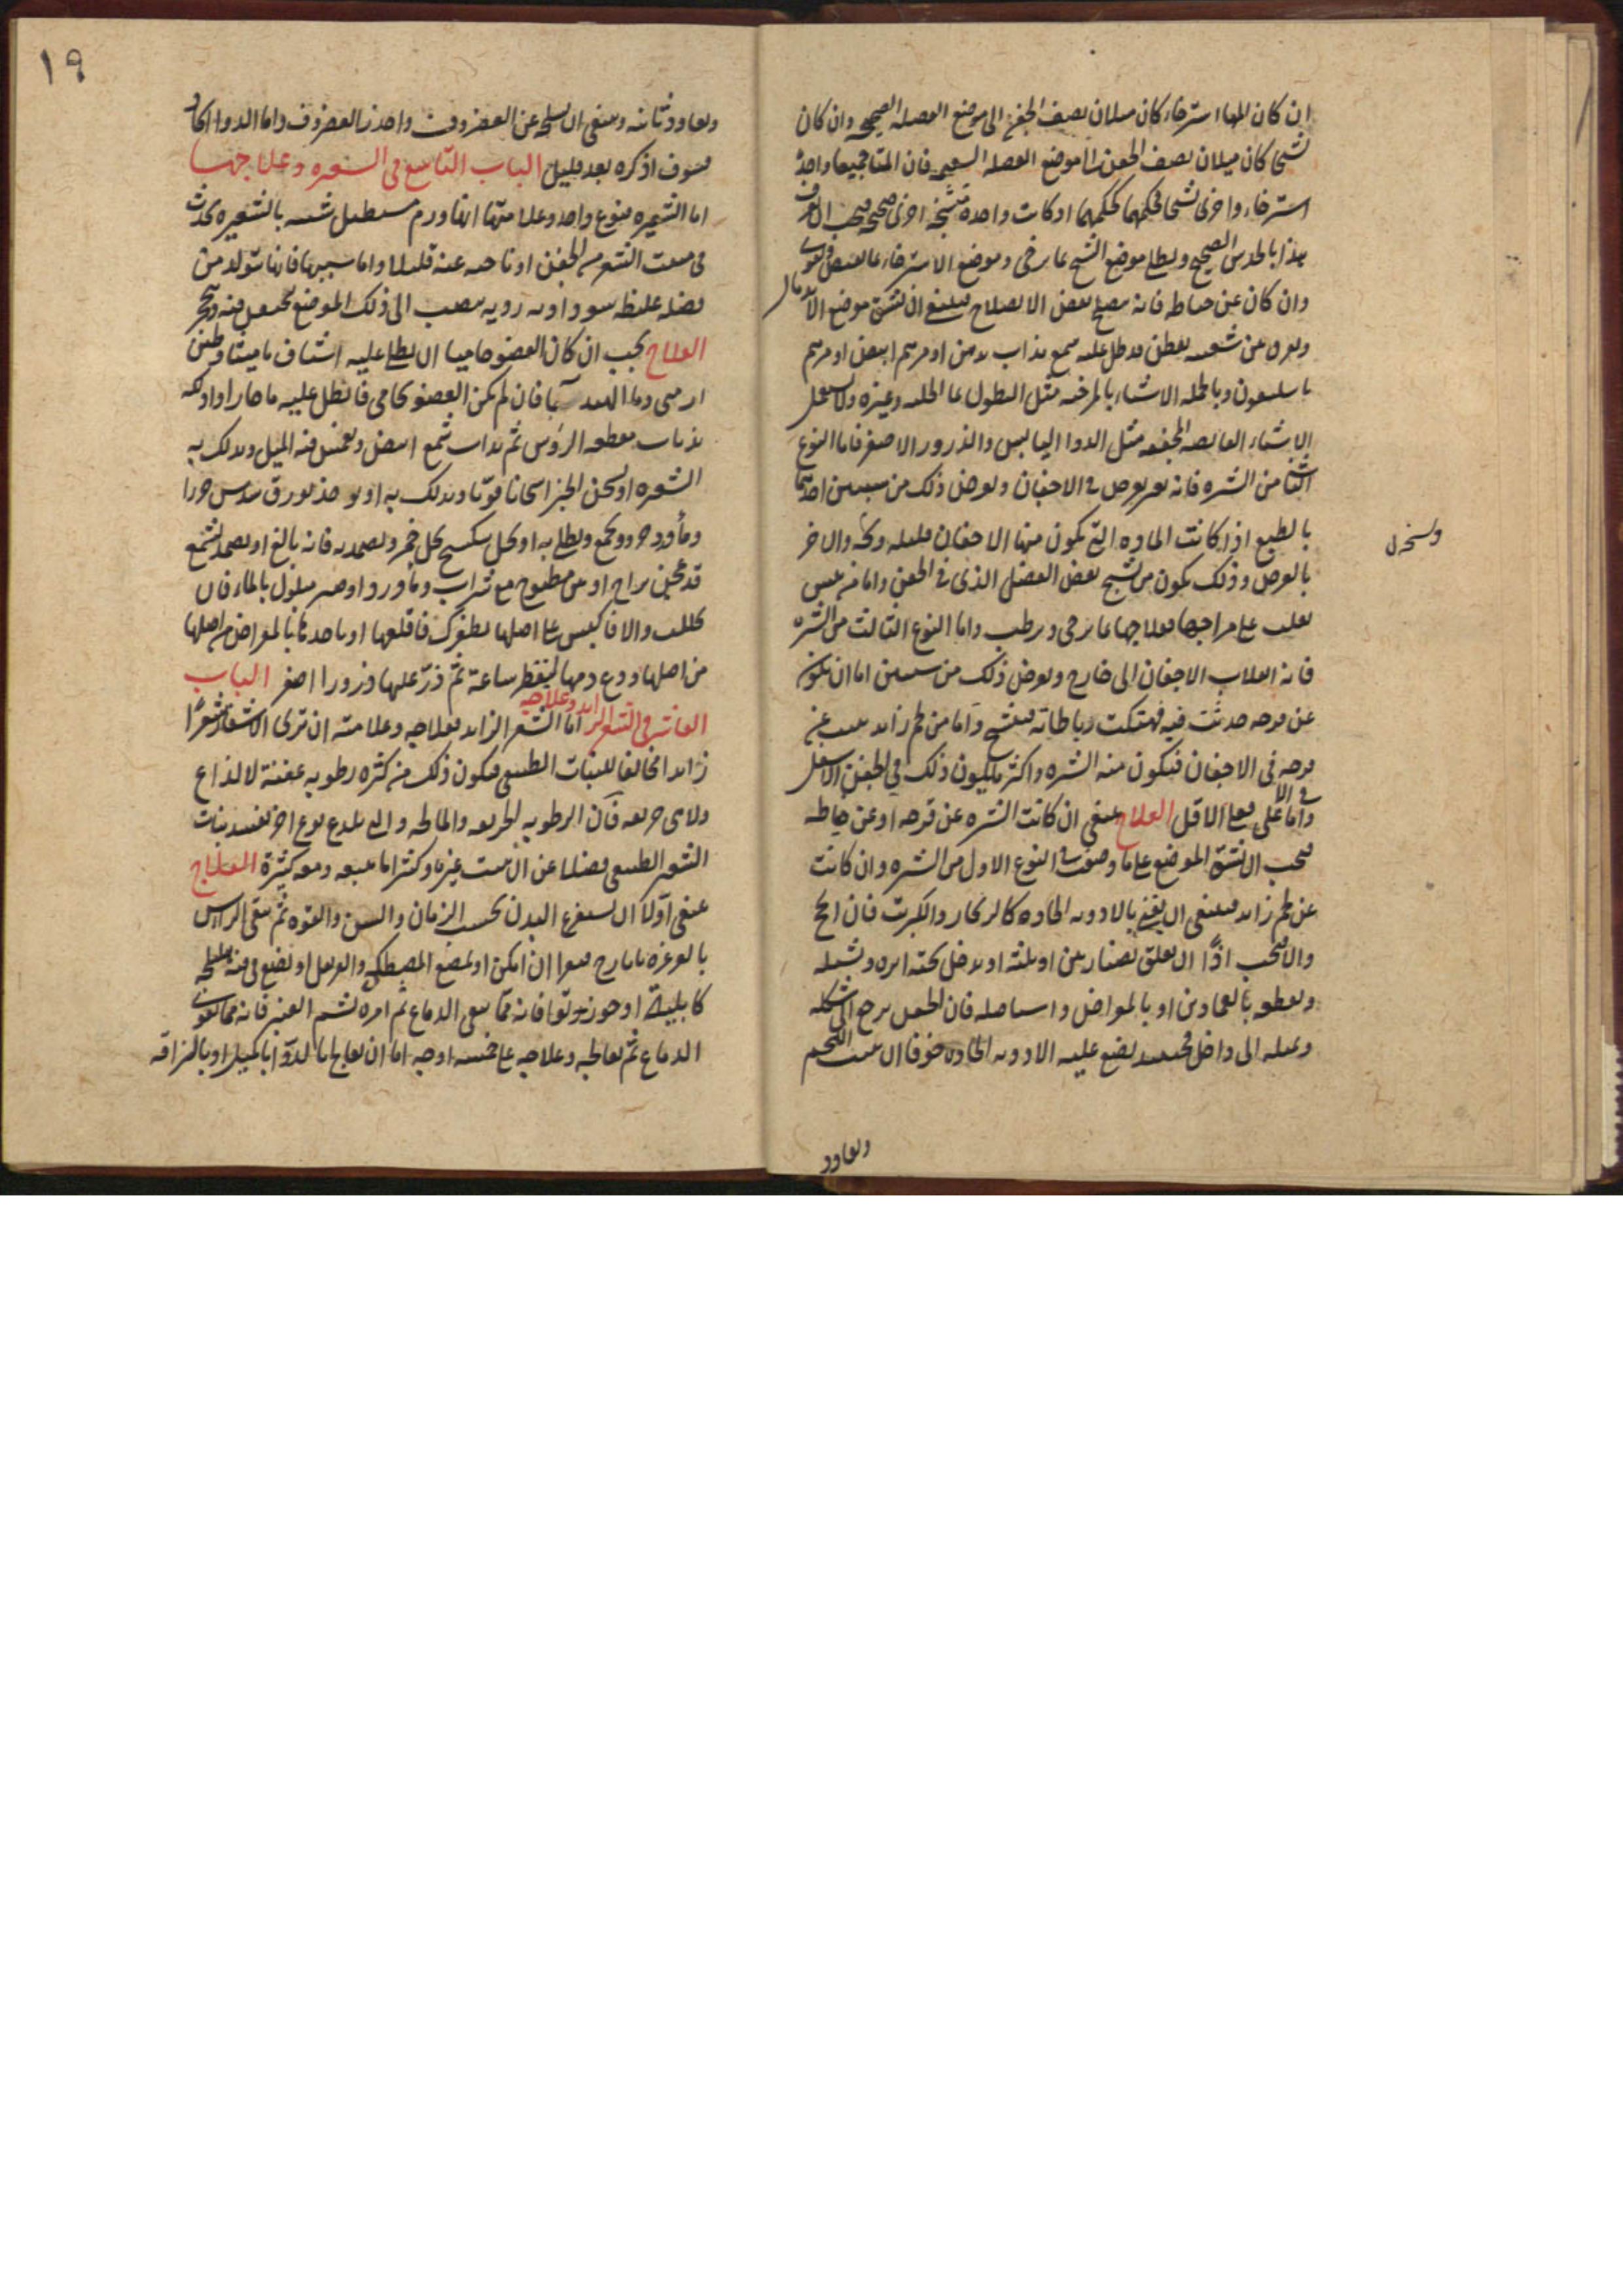 ان كان للها استرخاء كان ميلان نصف الجفن الى موضع العضله الصحيحه وان كان
تشنجا كان ميلان نصف الجفن الى موضع العضله السقيمه فان المتا جميعا واحدة
استرخاء واخرى تشنجا فحكمهما كحكمهما او كانت واحدة متشنجة اخرى صحيحه فيجب ان تعرف
هذا بالحدس الصحيح ويطلى موضع التشنج بما يرخى وموضع الاسترخاء بما يقبض ويقوى
وان كان عن خياطه فانه يصلح بعض الاصلاح فينبغى ان تشق موضع الاندمال
ويفرق بين شفتيه بقطن قد طلى عليه شمع مذاب بدهن او مرهم ابيض او مرهم
باسليقون وبالجمله الاشياء المرخيه مثل النطول بماء الحلبه وغيره ولا يستعمل
الاشياء القابضه المجففه مثل الدوا اليابس والذرور الاصفر فاما النوع
الثانى من الشتره فانه قصر يعرض فى الاجفان ويعرض ذلك من سببين احدهما
بالطبع اذا كانت الماده التى تكون منها الاجفان قليله وكه والاخر
بالعرض وذلك يكون من تشنج بعض العضل الذى فى الجفن واما من يبس
يغلب على مزاجها فعلاجها بما يرخى ويرطب واما النوع الثالث من الشتره
فانه انقلاب الاجفان الى خارج ويعرض ذلك من سببين اما ان تكون
عن قرحه حدثت فيه فهتكت رباطاته فيتشنج واما من لحم زايد ينبت عن
قرحه فى الاجفان فيكون منه الشتره واكثر ما يكون ذلك فى الجفن الاسفل
واما فى الاعلى فعلى الاقل العلاج ينبغى ان كانت الشتره عن قرحه او عن خياطه
فيجب ان تشق الموضع على ما وصفت فى النوع الاول من الشتره وان كانت
عن لحم زايد فينبغى ان يفنى بالادويه الحاده كالزنجار والكبريت فان انجح
والا فيجب اذًا ان تعلق بصنارتين او بثلثه او تدخل تحته ابره وتشيله
وتقطعه بالقمادين او بالمقراض واستاصله فان الجفن يرجع الى شكله
ويميله الى داخل فحينئذ يضع عليه الادويه الحاده خوفا ان ينبت اللحم
ويعاود
ويسخن
١٩
ويعاود ثانيه وينبغى ان يسلخه عن الغضروف واحذر الغضروف واما الدوا الحاد
فسوف اذكره بعد قليل الباب التاسع فى الشعيره وعلاجها
اما الشعيره فنوع واحد وعلامتها انها ورم مستطيل شبيه بالشعيره يحدث
فى منبت الشعر من الجفن او ناحيه عنه قليلا واما سببها فانها تتولد من
فضله غليظه سوداويه رديه تنصب الى ذلك الموضع فتحتقن فيه وتتحجر
العلاج يجب ان كان العضو حاميا ان يطلى عليه اشياف ماميثا وطين
ارمنى وماء الهندبا فان لم يكن العضو حامى فانطل عليه ماء حارا وادلكه
بذباب مقطعه الرؤس ثم يذاب شمع ابيض ويغمس فيه الميل ويدلك به
الشعيره او يسخن الخبز اسخانا قويا ويدلك به او يوخذ بورق سدس جزوا
وبارزد جزو ويجمع ويطلى به او يحل سكبينج بخل خمر ويضمد به فانه بالغ او يضمد بشمع
قد عجن بزاج او تين مطبوخ مع شراب وبارزد او صبر مبلول بالماء فان
تحللت والا فاكبس على اصلها بظفرك فاقلعها او باحدها بالمقراض من اصلها
من اصلها ودع دمها ليقطر ساعة ثم ذر عليها ذرورا اصفر الباب
العاشر فى الشعر الزايد وعلاجه اما الشعر الزايد فعلاجه وعلامته ان ترى الاشفار شعرًا
زايدا مخالفا للنبات الطبيعى فيكون ذلك من كثرة رطوبه عفنة لا لذاع
ولا حريفه فان الرطوبه الحريفه والمالحه والتى بلذع نوع اخر تفسد نبات
الشعر الطبيعى فضلا عن ان ينبت غيره وكثيرا ما يتبعه دمعه كثيرة العلاج
ينبغى اولا ان يستفرغ البدن بحسب الزمان والسن والقوه ثم ينقى الراس
بالغرغره بايارج فيقرا ان امكن او بمضغ المصطكى والفلفل او يضع فى فيه هليلجه
كابلية او جوز بوّا فانه مما ينقى الدماغ ثم امره بشم العنبر فانه مما يقوى
الدماغ ثم يعالجه وعلاجه على خمسه اوجه اما ان يعالج بالدوا بالميل او بالزاقه